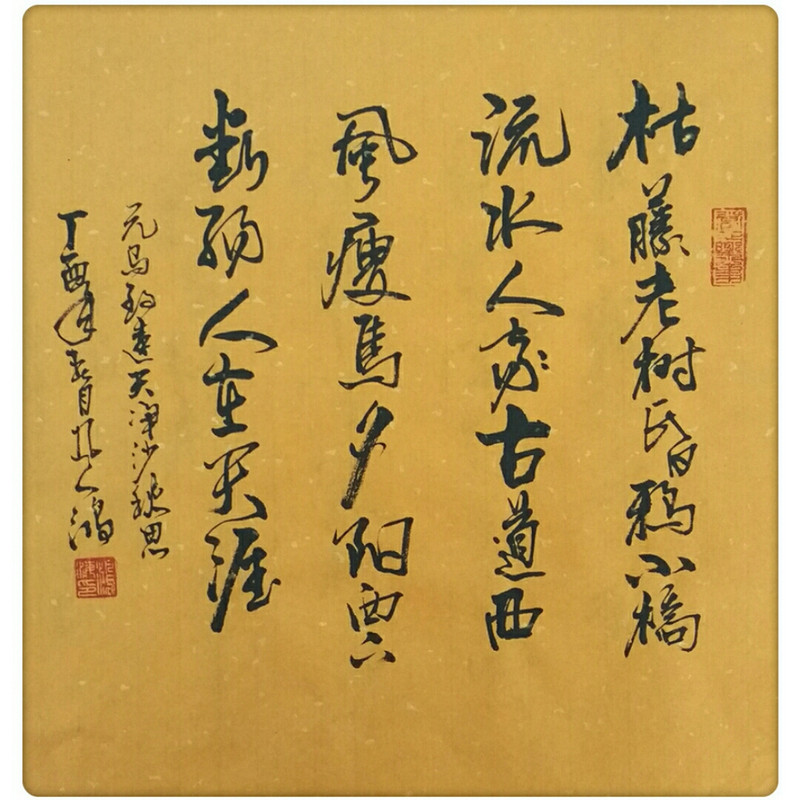 枯藤老树昏鸦小橋
流水人家古道西
風瘦馬夕阳西下
断肠人在天涯
元马致遠天净沙秋思
丁酉年春月